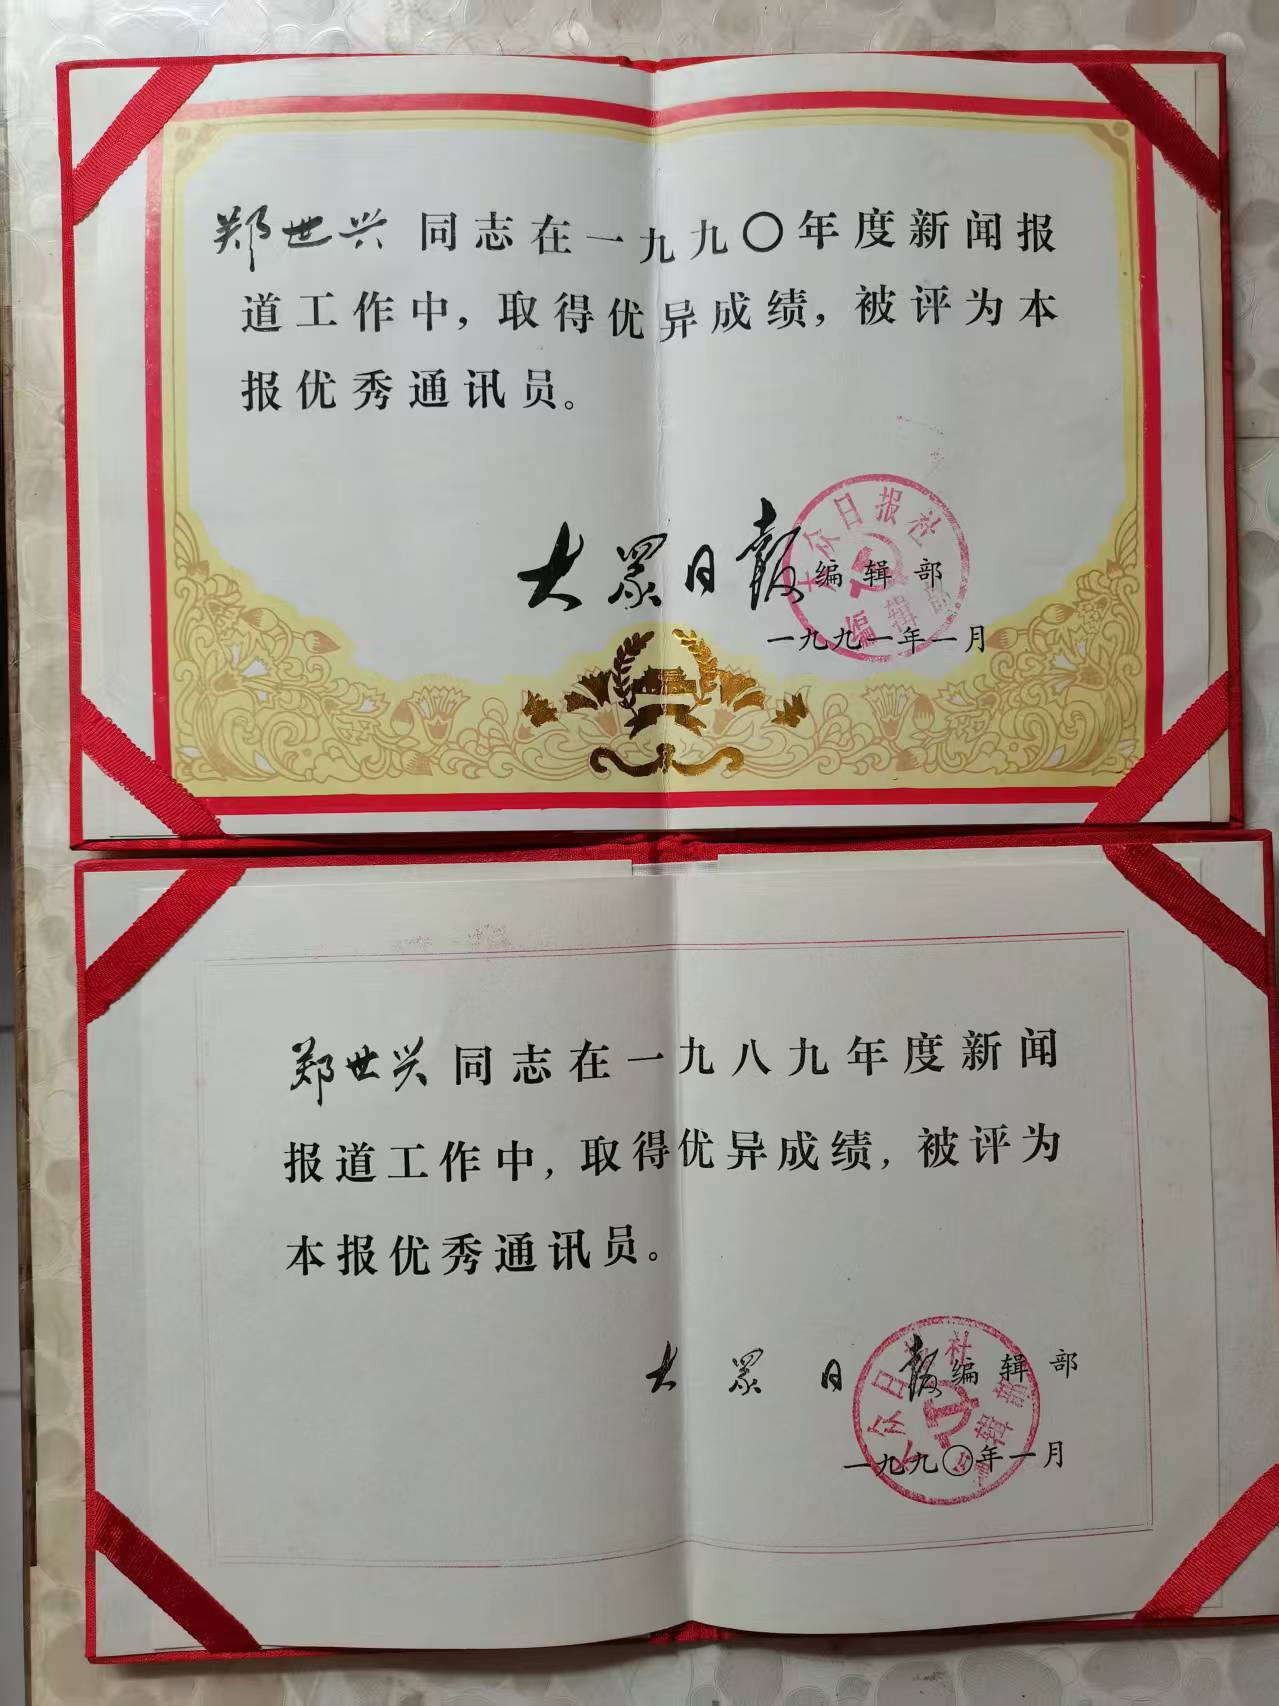 郑世兴同志在一九九〇年度新闻报
道工作中，取得优异成绩，被评为本
报优秀通讯员。
大众日报社
编辑部
大眾日報编辑部
一九九一年一月
郑世兴同志在一九八九年度新闻
报道工作中，取得优异成绩，被评为
本报优秀通讯员。
大眾日報编辑部
一九九〇年一月